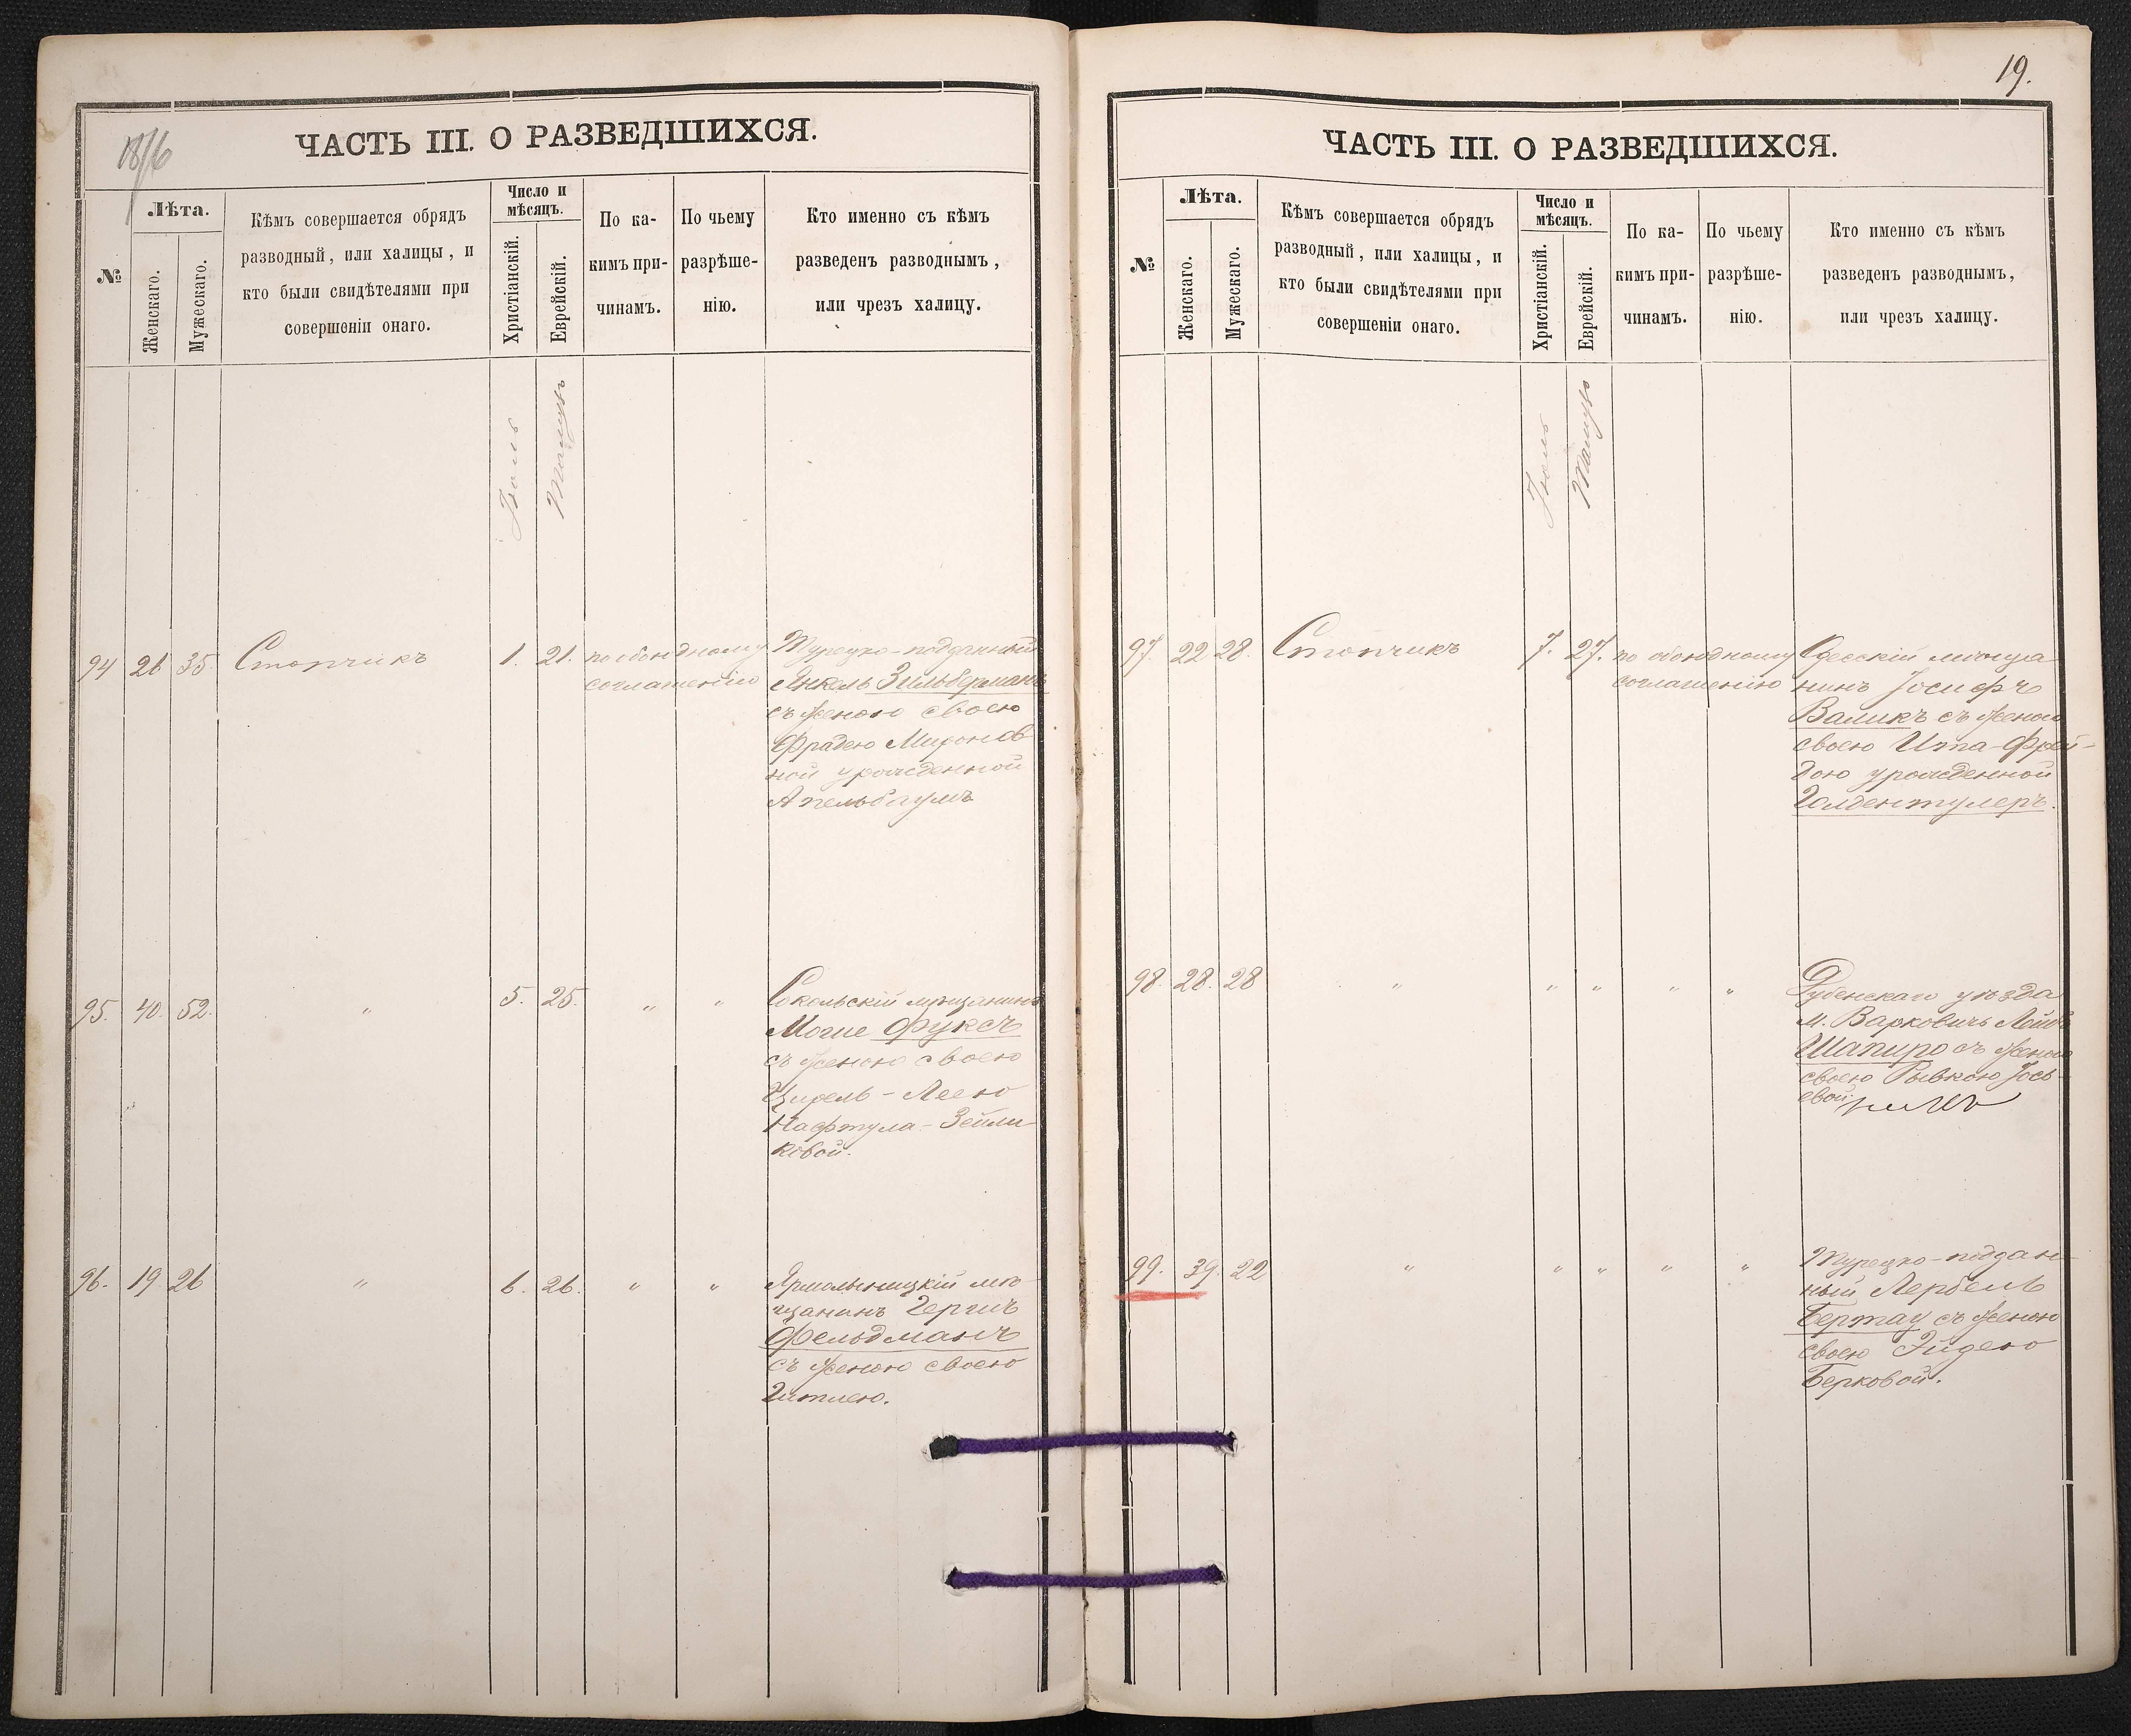 19.
1876
ЧАСТЬ III. О РАЗВЕДШИХСЯ.
№
Лѣта.
Женскаго.
Мужескаго.
Кѣмъ совершается обрядъ
разводный, или халицы, и
кто были свидѣтелями при
совершеніи онаго.
Число и
мѣсяцъ.
Христіанскій.
Еврейскій.
По ка-
кимъ при-
чинамъ.
По чьему
разрѣше-
нію.
Кто именно съ кѣмъ
разведенъ разводнымъ,
или чрезъ халицу.
Іюль
Тамузъ
94 26 35. Стопчикъ 1. 21. по обоюдному
соглашенію
Турецко-подданный
Янкель Зильберманъ
съ женою своею
Фрадею Миронов
ной урожденной
Апельбаумъ
95. 40. 52. " 5. 25. " "
Сокольскій мѣщанинъ
Моше Фуксъ
съ женою своею
Цирель-Леею
Нафтула-Зейли
ковой.
96. 19. 26 " 6. 26. " "
Ярмолыницкій мѣ-
щанинъ Гершъ
Фельдманъ
съ женою своею
Гитлею.
ЧАСТЬ III. О РАЗВЕДШИХСЯ.
№
Лѣта.
Женскаго.
Мужескаго.
Кѣмъ совершается обрядъ
разводный, или халицы, и
кто были свидѣтелями при
совершеніи онаго.
Число и
мѣсяцъ.
Христіанскій.
Еврейскій.
По ка-
кимъ при-
чинамъ.
По чьему
разрѣше-
нію.
Кто именно съ кѣмъ
разведенъ разводнымъ,
или чрезъ халицу.
Іюль
Тамузъ
97. 22 28. Стопчикъ 7. 27. по обоюдному
соглашенію
Одесскій мѣща
нинъ Іосифъ
Валикъ съ женою
своею Ита-Фрей-
дою урожденной
Голдентулеръ.
98. 28. 28 " " " " "
Дубенскаго уѣзда
м. Варковичъ Лейба
Шапиро съ женою
своею Рывкою Іось-
евой
99. 39. 22 " " " " "
Турецко-поддан-
ный Лербель
Бертау съ женою
своею Эйдею
Берковой.